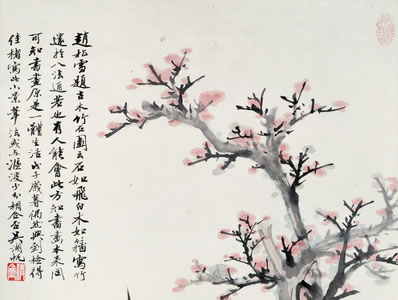 趙松雪題古木竹石圖云石如飛白木如籀寫竹
還於八法通若也有人能會此方知書畫本來同
可知書畫原是一體生活戊子歲暮偶然興到撿得
佳楮寫此小景筆法或与漚波少相合否吳湖帆